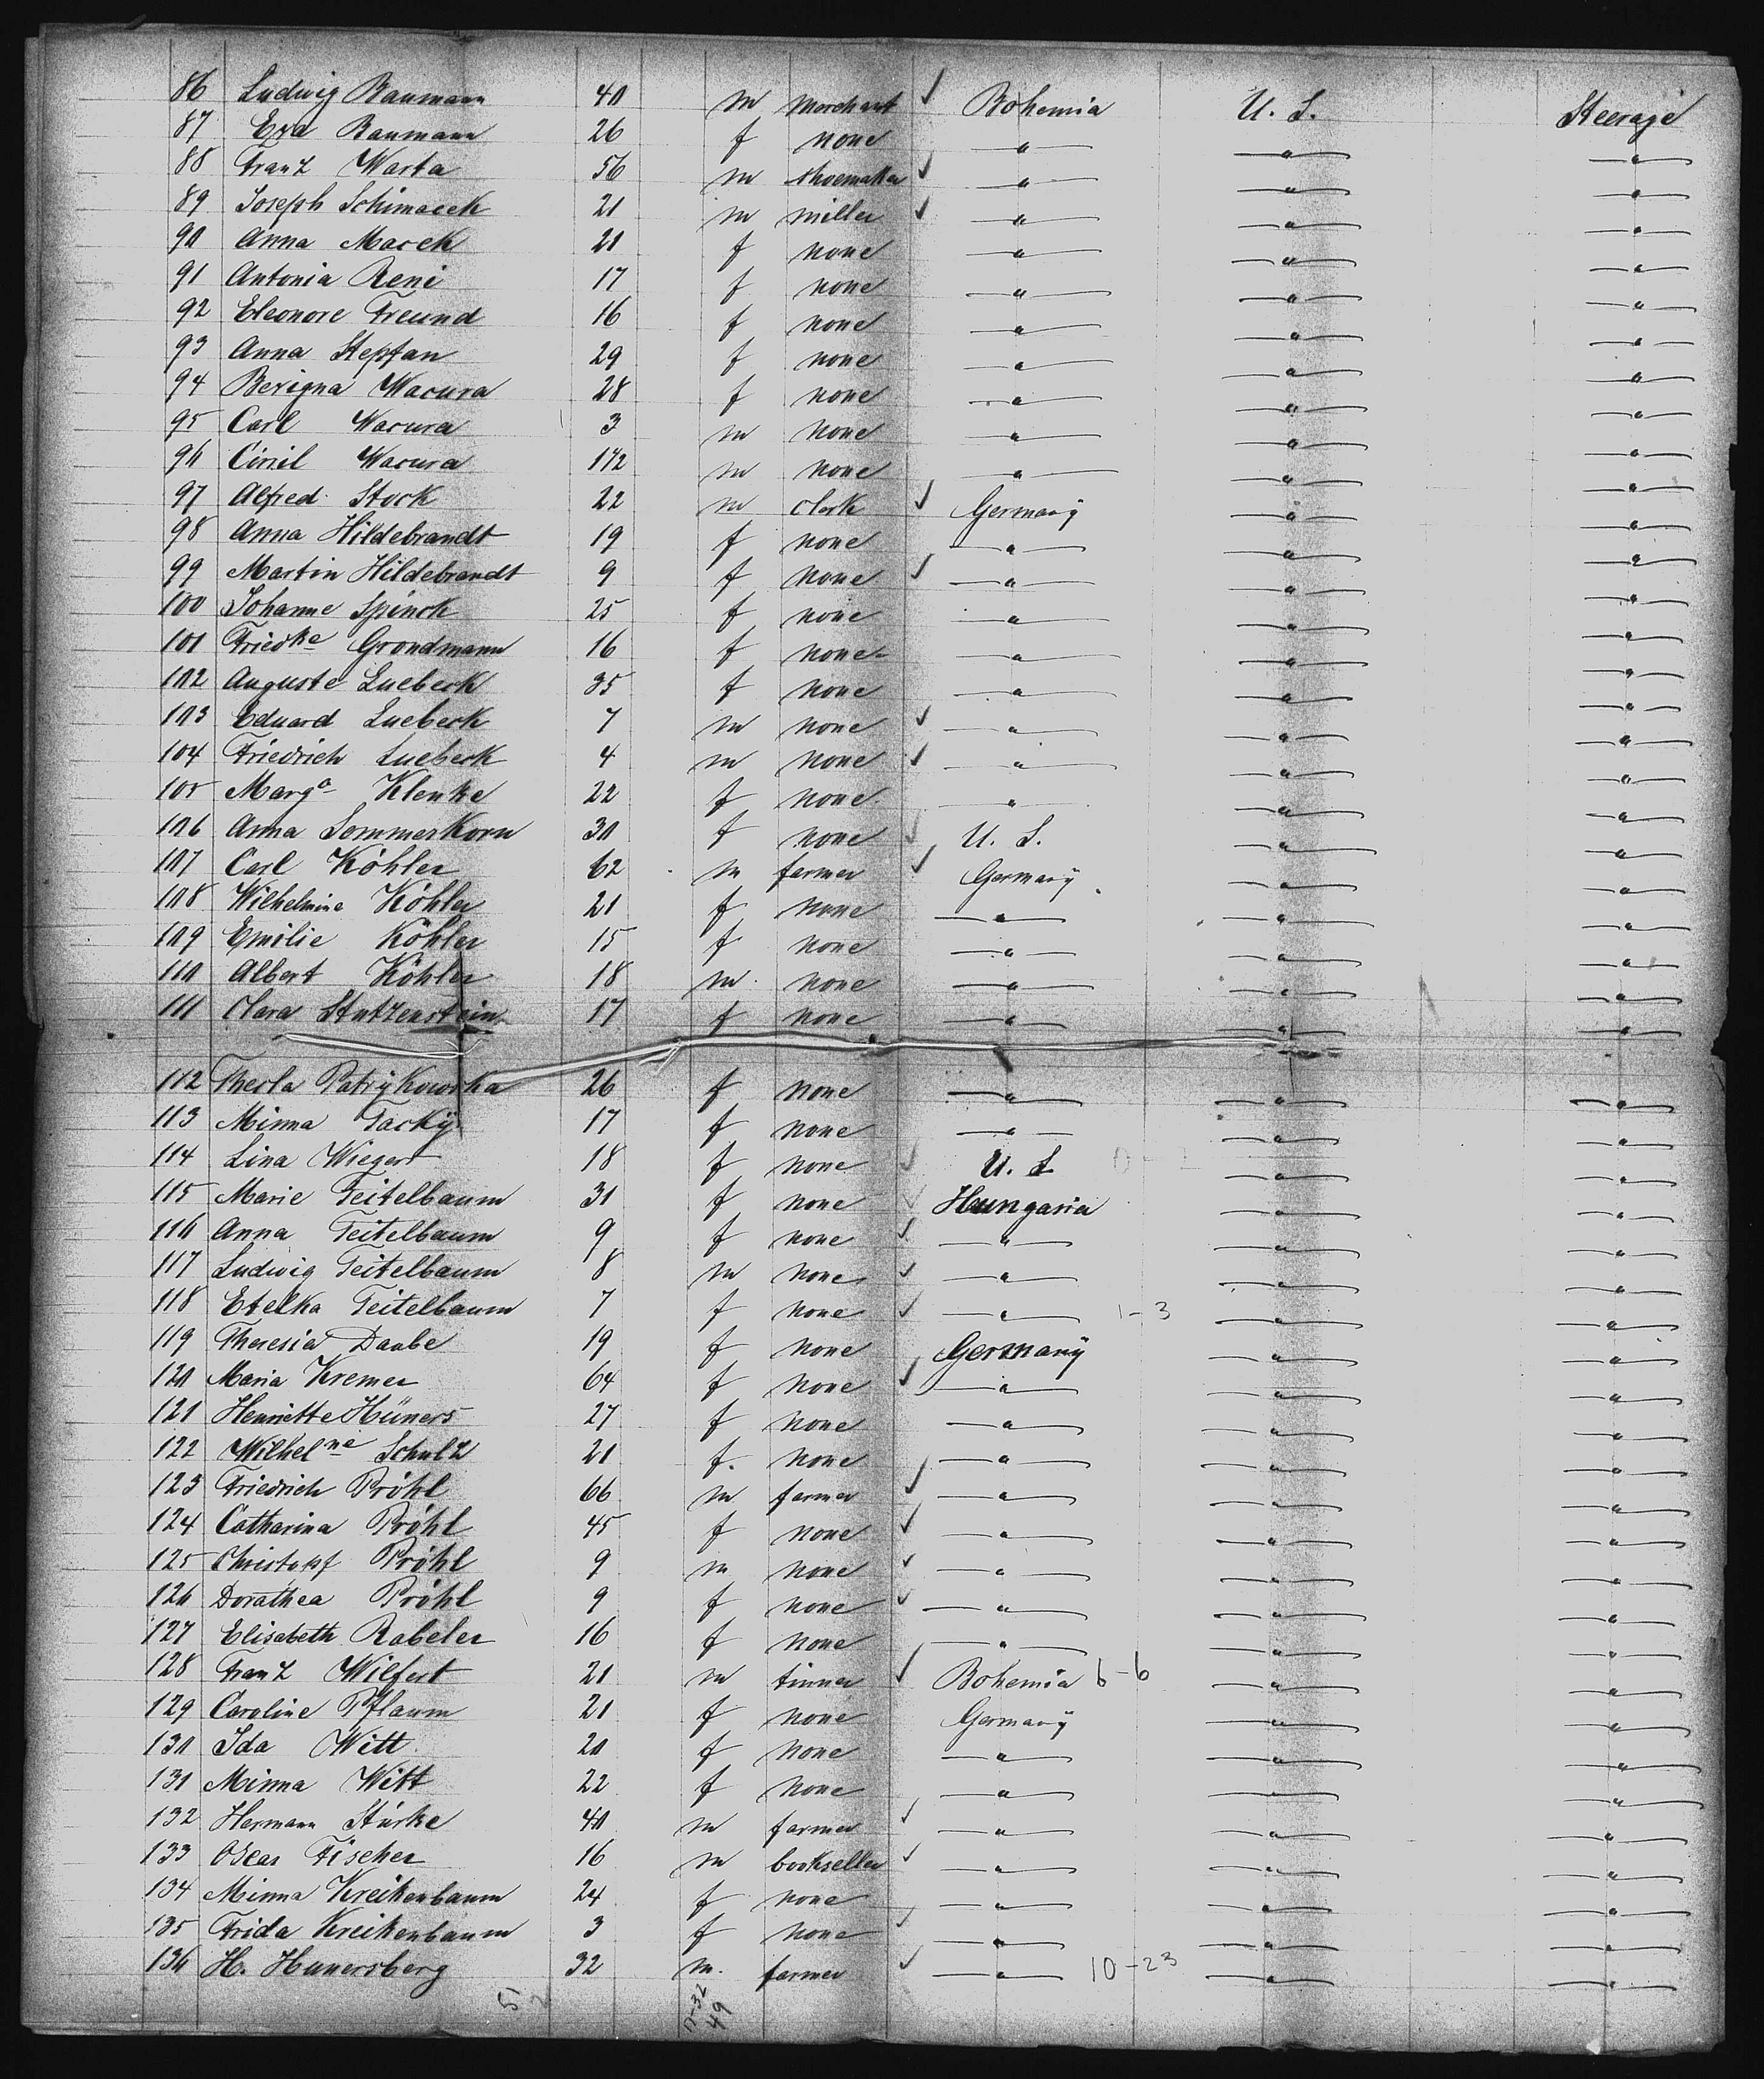 86 Ludwig Baumann 40 m Merchant ✓ Bohemia U. S. Steerage
87 Eva Baumann 26 f none " " "
88 Franz Warta 56 m shoemaker ✓ " " "
89 Joseph Schimacek 21 m miller ✓ " " "
90 Anna Macek 20 f none " " "
91 Antonia Reni 17 f none " " "
92 Eleonore Freund 16 f none " " "
93 Anna Stepfan 29 f none " " "
94 Berigna Wacura 28 f none " " "
95 Carl Wacura 3 m none " " "
96 Ciril Wacura 1 1/2 m none " " "
97 Alfred Stock 22 m clerk ✓ Germany " "
98 Anna Hildebrandt 19 f none " " "
99 Martin Hildebrandt 9 f none ✓ " " "
100 Johanne Spinck 25 f none " " "
101 Friedke Grondmann 16 f none " " "
102 Auguste Luebeck 35 f none " " "
103 Eduard Luebeck 7 m none ✓ " " "
104 Friedrich Luebeck 4 m none ✓ " " "
105 Marga Klenke 22 f none " " "
106 Anna Sommerkorn 30 f none ✓ U. S. " "
107 Carl Köhler 62 m farmer ✓ Germany " "
108 Wilhelmine Köhler 21 f none " " "
109 Emilie Köhler 15 f none " " "
110 Albert Köhler 18 m none " " "
111 Clara Stutzenstein 17 f none " " "
112 Thecla Patrykowska 26 f none " " "
113 Minna Tacky 17 f none " " "
114 Lina Wiegert 18 f none ✓ U. S. " "
115 Marie Teitelbaum 31 f none ✓ Hungaria " "
116 Anna Teitelbaum 9 f none ✓ " " "
117 Ludwig Teitelbaum 8 m none ✓ " " "
118 Etelka Teitelbaum 7 f none ✓ " 1-3 " "
119 Theresia Daube 19 f none Germany " "
120 Maria Kremer 64 f none ✓ " " "
121 Henriette Hüners 27 f none " " "
122 Wilhelne Schulz 21 f. none " " "
123 Friedrich Pröhl 66 m farmer ✓ " " "
124 Catharina Pröhl 45 f none ✓ " " "
125 Christopf Pröhl 9 m none ✓ " " "
126 Dorathea Pröhl 9 f none ✓ " " "
127 Elisabeth Rabeler 16 f none " " "
128 Franz Wilfert 21 m tinner ✓ Bohemia 6-6 " "
129 Caroline Pflaum 21 f none Germany " "
130 Ida Witt 20 f none " " "
131 Minna Witt 22 f none " " "
132 Hermann Stürke 40 m farmer ✓ " " "
133 Oscar Fischer 16 m bookseller ✓ " " "
134 Minna Kreikenbaum 24 f none " " "
135 Frida Kreikenbaum 3 f none ✓ " " "
136 H. Hunersberg 32 m. farmer ✓ " 10-23 " "
49